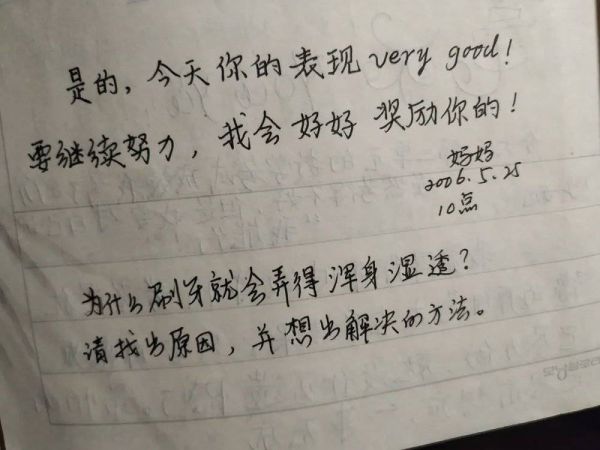 是的，今天你的表现very good！
要继续努力，我会好好奖励你的！
妈妈
2006.5.25
10点
为什么刷牙就会弄得浑身湿透？
请找出原因，并想出解决的方法。